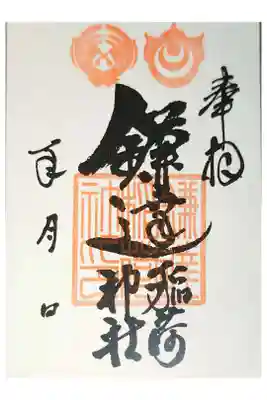 奉拝
鎌達稲荷神社
年月日